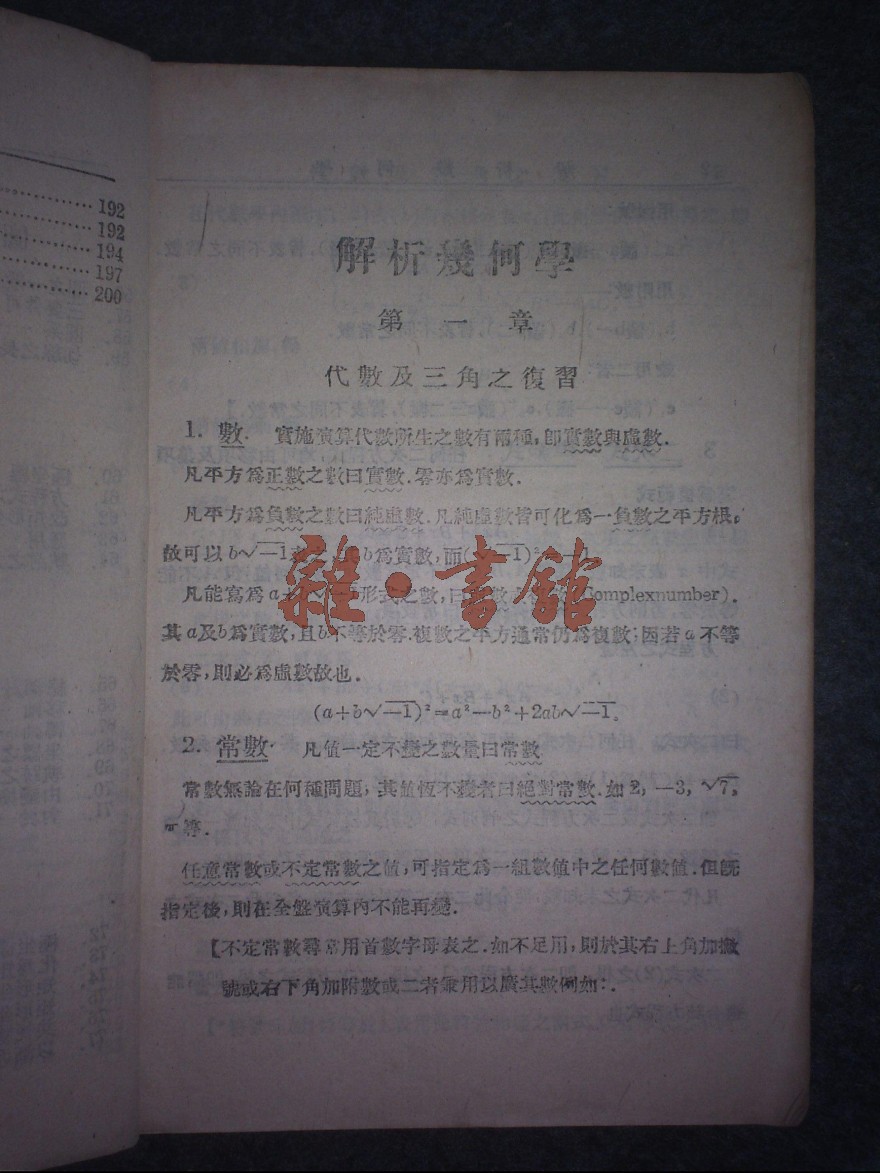 192
192
194
197
200
解析幾何學
第一章
代數及三角之復習
1. 數. 實施演算代數所生之數有兩種,卽實數與虛數.
凡平方爲正數之數曰實數.零亦爲實數.
凡平方爲負數之數曰純虛數.凡純虛數皆可化爲一負數之平方根。
故可以b√—1 b爲實數,而( —1)²
凡能寫爲a 形式之數,曰 數 (Complexnumber).
其a及b爲實數,且b不等於零.複數之平方通常仍爲複數;因若a不等
於零,則必爲虛數故也.
(a+b√—1)²=a²—b²+2ab√—1。
2. 常數. 凡值一定不變之數量曰常數.
常數無論在何種問題,其值恆不變者曰絕對常數.如2, —3, √7,
π等.
任意常數或不定常數之値,可指定爲一組數値中之任何數値.但旣
指定後,則在全盤演算內不能再變.
【不定常數尋常用首數字母表之.如不足用,則於其右上角加撇
號或右下角加附數或二者兼用以廣其數例如:.
雜·書館